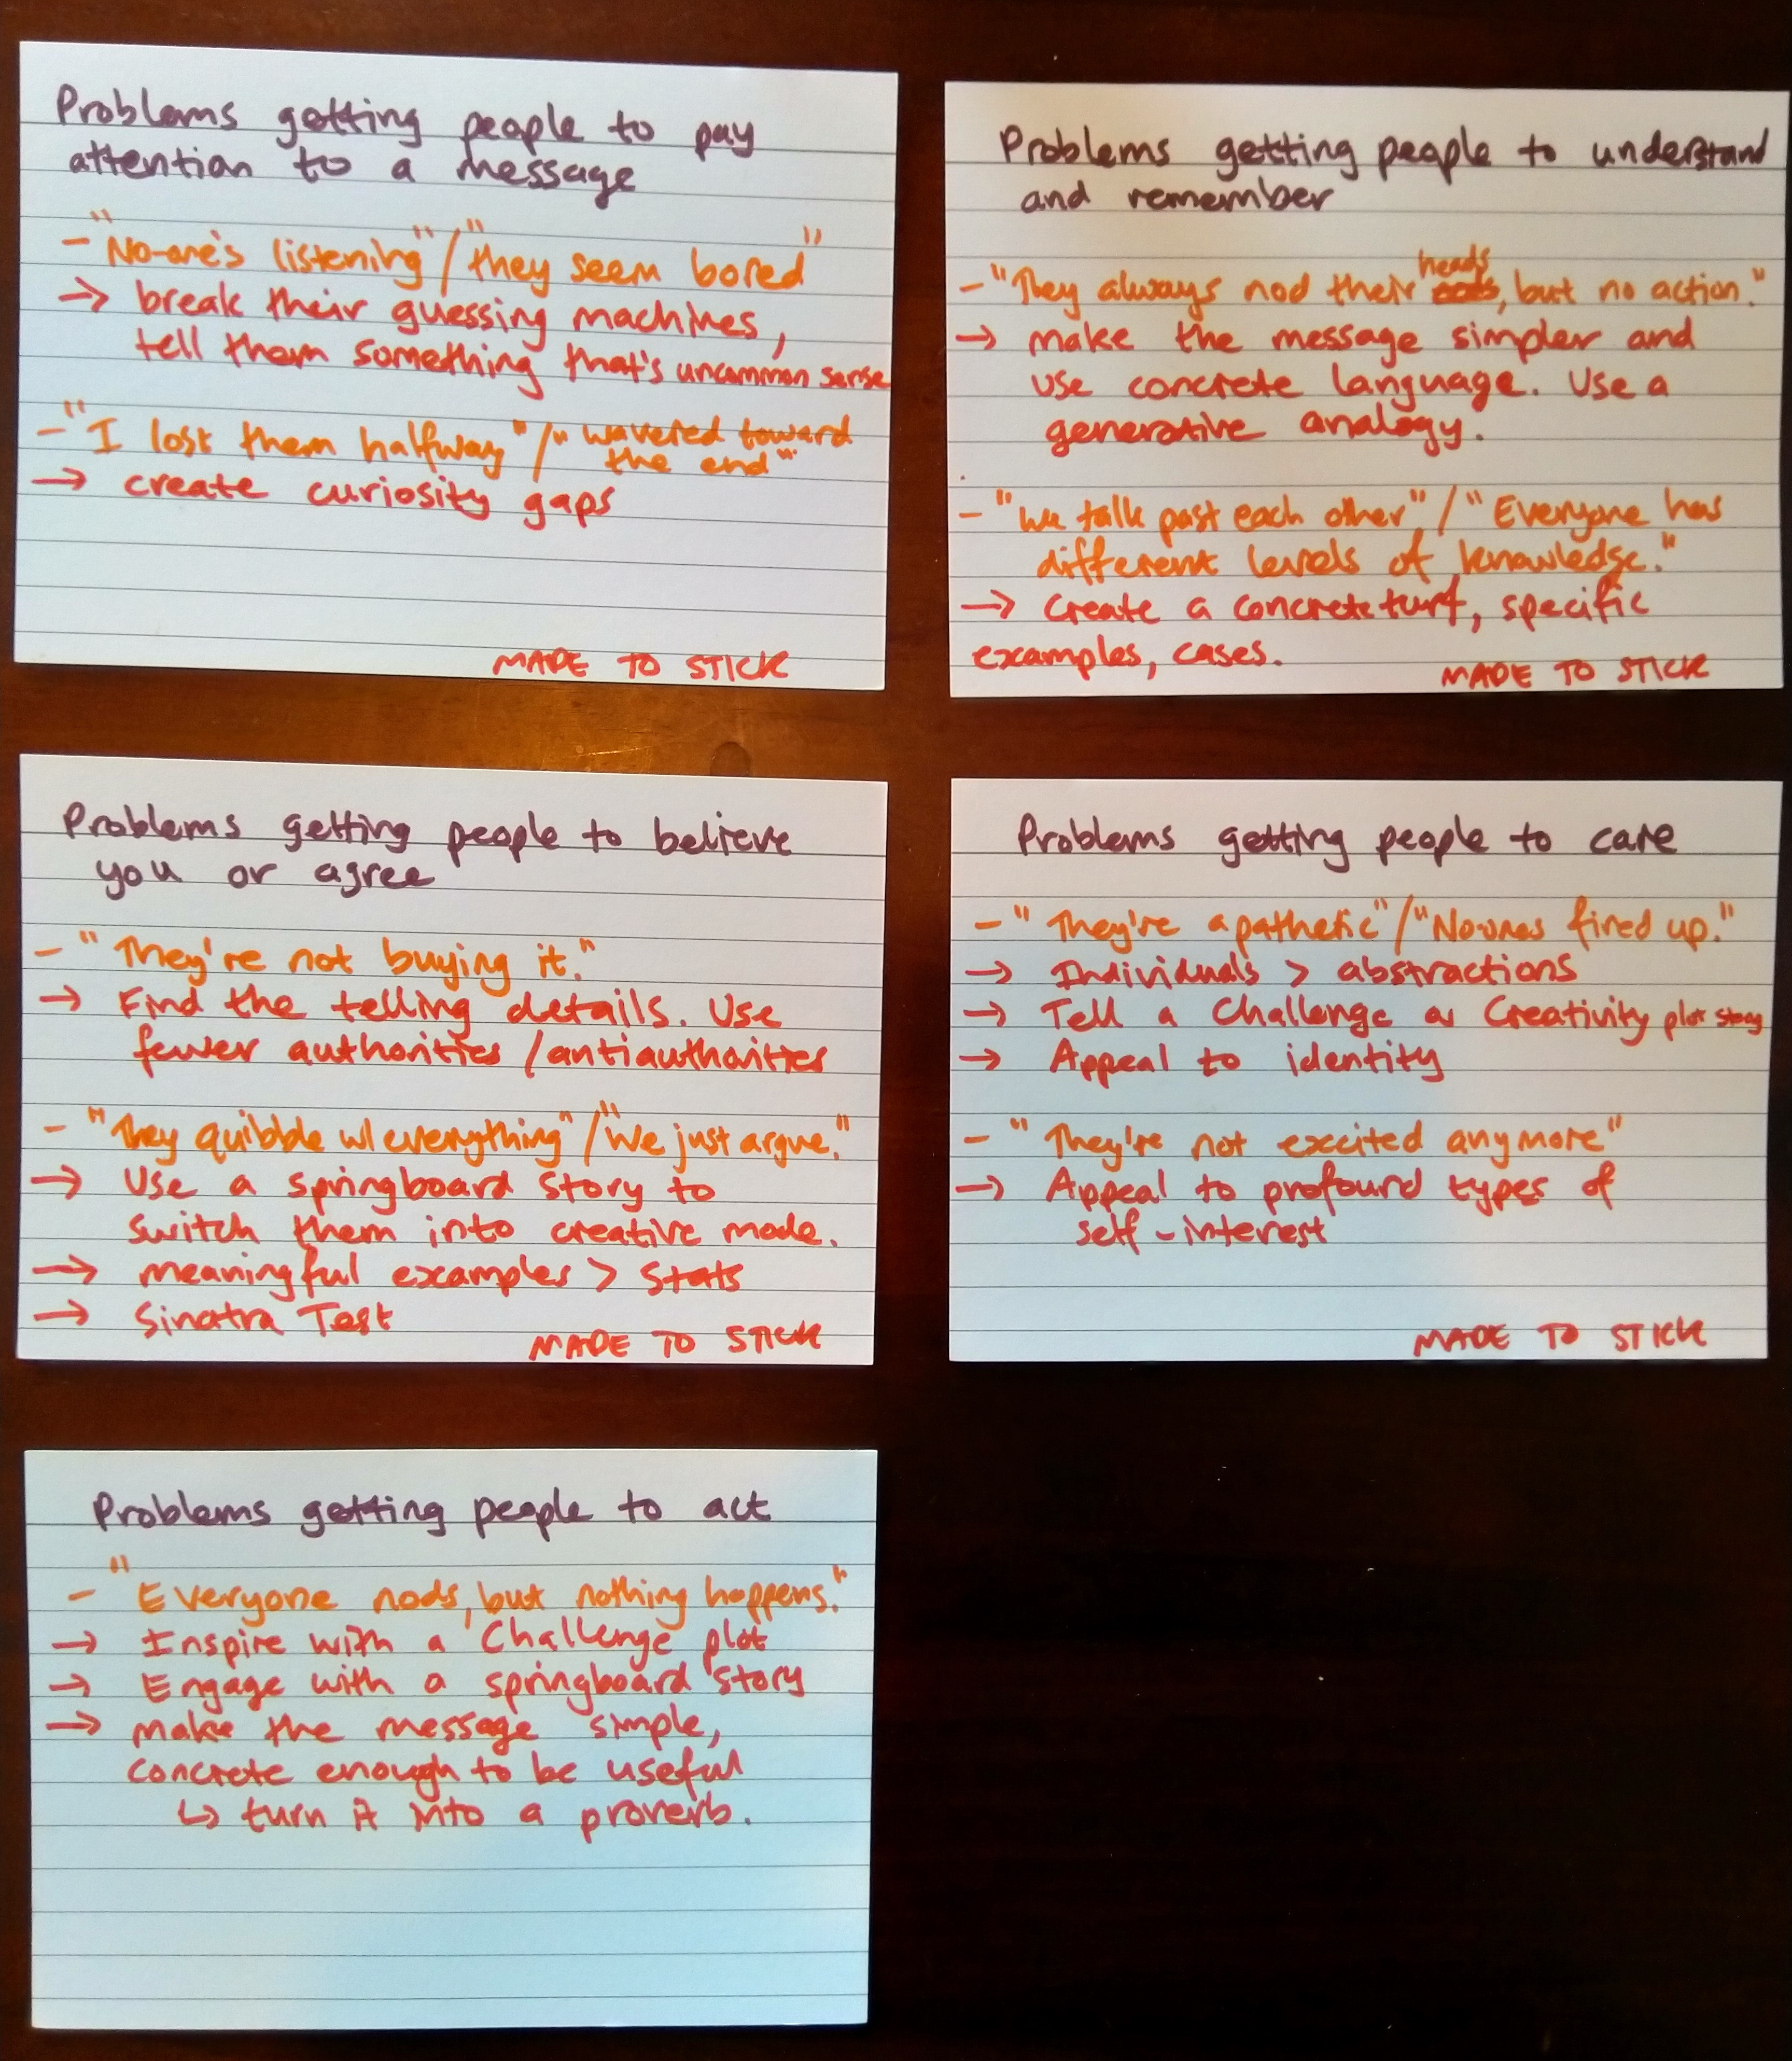 Problems getting people to pay
attention to a message
- "No-one's listening" / "they seem bored"
→ break their guessing machines,
tell them something that's uncommon sense
- "I lost them halfway" / "wavered toward
the end"
→ create curiosity gaps
MADE TO STICK
Problems getting people to understand
and remember
- "They always nod their heads, but no action."
→ make the message simpler and
use concrete language. Use a
generative analogy.
- "We talk past each other" / "Everyone has
different levels of knowledge."
→ Create a concrete turf, specific
examples, cases.
MADE TO STICK
Problems getting people to believe
you or agree
- "They're not buying it."
→ Find the telling details. Use
fewer authorities / antiauthorities
- "They quibble w/ everything" / "We just argue."
→ Use a springboard story to
switch them into creative mode.
→ meaningful examples > stats
→ Sinatra Test
MADE TO STICK
Problems getting people to care
- "They're apathetic" / "No-ones fired up."
→ Individuals > abstractions
→ Tell a Challenge or Creativity plot story
→ Appeal to identity
- "They're not excited anymore"
→ Appeal to profound types of
self-interest
MADE TO STICK
Problems getting people to act
- "Everyone nods, but nothing happens."
→ Inspire with a Challenge plot
→ Engage with a springboard story
→ make the message simple,
concrete enough to be useful
↳ turn it into a proverb.